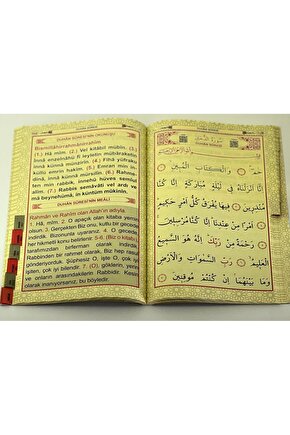 DUHÂN SÛRESİ'NİN OKUNUŞU
Bismillâhirrahmânirrahîm
(1.) Hâ mîm. (2.) Vel kitâbil mübîn. (3.)
İnnâ enzelnâhü fî leyletin mübâraketin
innâ künnâ münzirîn. (4.) Fîhâ yüfraku
küllü emrin hakîm. (5.) Emran min
indinâ, innâ künnâ mürsilîn. (6.) Rahme-
ten min rabbik, innehû hüves semî
alîm. (7.) Rabbis semâvâti vel ardı ve
mâ beynehümâ, in küntüm mûkinîn.
DUHÂN SÛRESİ'NİN MEÂLİ
Rahmân ve Rahîm olan Allah'ın adıyla
1. Hâ, mîm. 2. O apaçık olan kitaba yemin
olsun. 3. Gerçekten Biz onu, kutlu bir gecede
indirdik. Bizonunla uyarmaktayız. 4. O gecede
her hikmetli konu belirlenir. 5-6. (Biz o kitabı)
tarafımızdan bir emir olarak indirdik
Rabbinden bir rahmet olarak. Biz hep elçi
göndeririz. Şüphesiz O, işte O, çok iyi
işiten, çok iyi bilendir. 7. (O), göklerin, yerin
ve onların arasındakilerin Rabbidir. Kesin
olarak inanıyorsanız, bu böyledir.
حم وَالْكِتَابِ الْمُبِينِ
إِنَّا أَنْزَلْنَاهُ فِي لَيْلَةٍ مُبَارَكَةٍ إِنَّا كُنَّا
مُنْذِرِينَ فِيهَا يُفْرَقُ كُلُّ أَمْرٍ حَكِيمٍ
أَمْرًا مِنْ عِنْدِنَا إِنَّا كُنَّا مُرْسِلِينَ
رَحْمَةً مِنْ رَبِّكَ إِنَّهُ هُوَ السَّمِيعُ
الْعَلِيمُ رَبِّ السَّمٰوَاتِ وَالْأَرْضِ
وَمَا بَيْنَهُمَا إِنْ كُنْتُمْ مُوقِنِينَ